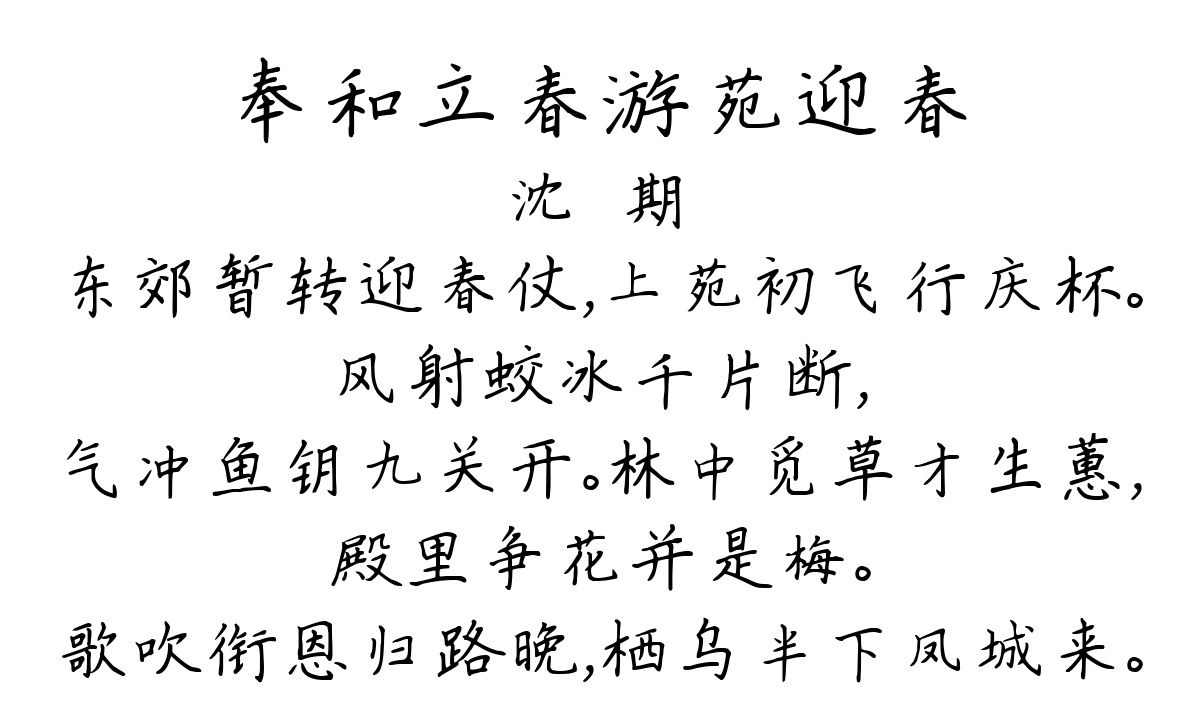 奉和立春游苑迎春
沈 期
东郊暂转迎春仗,上苑初飞行庆杯。
风射蛟冰千片断,
气冲鱼钥九关开。林中觅草才生蕙,
殿里争花并是梅。
歌吹衔恩归路晚,栖乌半下凤城来。